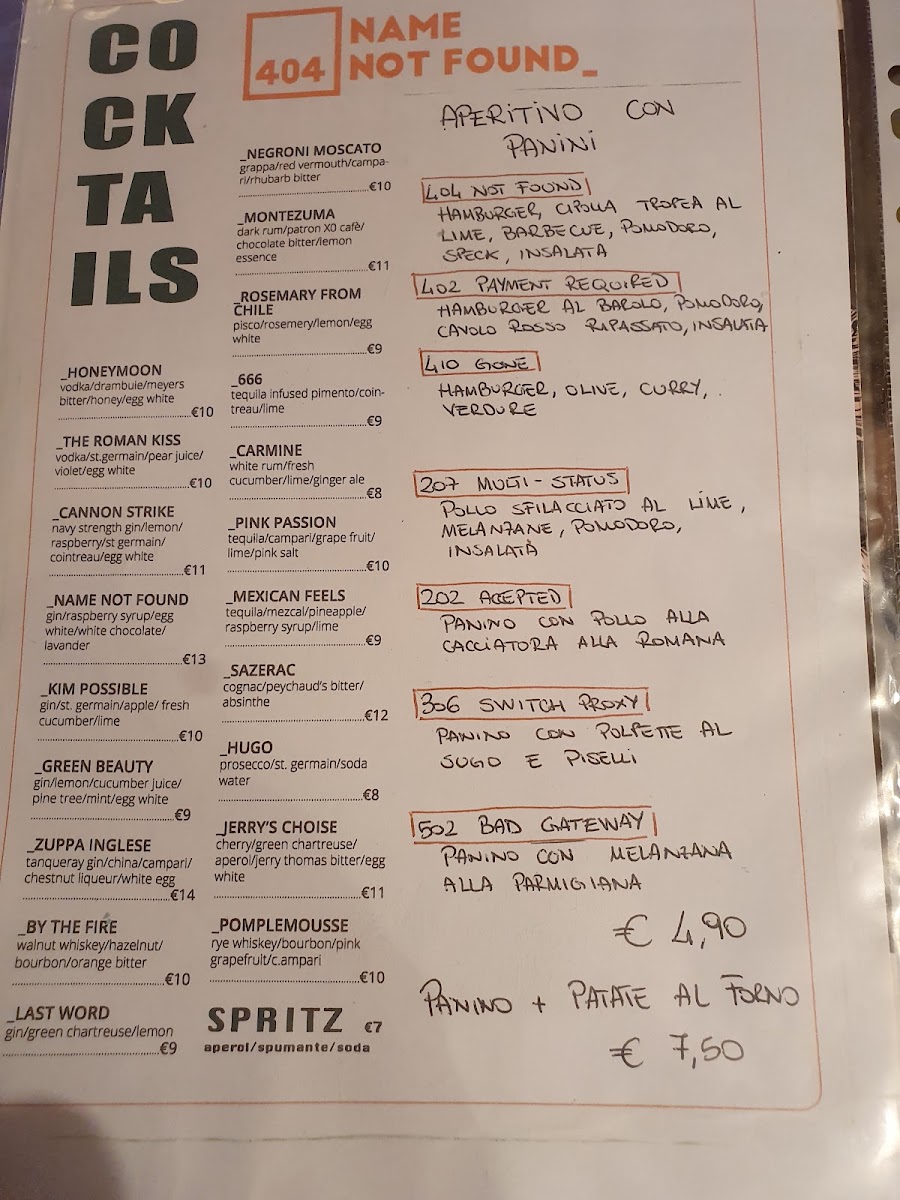 CO
CK
TA
ILS
404 NAME
NOT FOUND_
_HONEYMOON
vodka/drambuie/meyers
bitter/honey/egg white
€10
_THE ROMAN KISS
vodka/st.germain/pear juice/
violet/egg white
€10
_CANNON STRIKE
navy strength gin/lemon/
raspberry/st germain/
cointreau/egg white
€11
_NAME NOT FOUND
gin/raspberry syrup/egg
white/white chocolate/
lavander
€13
_KIM POSSIBLE
gin/st. germain/apple/ fresh
cucumber/lime
€10
_GREEN BEAUTY
gin/lemon/cucumber juice/
pine tree/mint/egg white
€9
_ZUPPA INGLESE
tanqueray gin/china/campari/
chestnut liqueur/white egg
€14
_BY THE FIRE
walnut whiskey/hazelnut/
bourbon/orange bitter
€10
_LAST WORD
gin/green chartreuse/lemon
€9
_NEGRONI MOSCATO
grappa/red vermouth/campa-
ri/rhubarb bitter
€10
_MONTEZUMA
dark rum/patron X0 cafè/
chocolate bitter/lemon
essence
€11
_ROSEMARY FROM
CHILE
pisco/rosemery/lemon/egg
white
€9
_666
tequila infused pimento/coin-
treau/lime
€9
_CARMINE
white rum/fresh
cucumber/lime/ginger ale
€8
_PINK PASSION
tequila/campari/grape fruit/
lime/pink salt
€10
_MEXICAN FEELS
tequila/mezcal/pineapple/
raspberry syrup/lime
€9
_SAZERAC
cognac/peychaud's bitter/
absinthe
€12
_HUGO
prosecco/st. germain/soda
water
€8
_JERRY'S CHOISE
cherry/green chartreuse/
aperol/jerry thomas bitter/egg
white
€11
_POMPLEMOUSSE
rye whiskey/bourbon/pink
grapefruit/c.ampari
€10
SPRITZ €7
aperol/spumante/soda
APERITINO CON
PANINI
404 NOT FOUND
HAMBURGER, CIPOLLA TROPEA AL
LIME, BARBECUE, POMODORO,
SPECK, INSALATA
402 PAYMENT REQUIRED
HAMBURGER AL BAROLO, POMODORO,
CAVOLO ROSSO RIPASSATO, INSALATA
410 GONE
HAMBURGER, OLIVE, CURRY,
VERDURE
207 MULTI-STATUS
POLLO SFILACCIATO AL LIME,
MELANZANE, POMODORO,
INSALATA
202 ACEPTED
PANINO CON POLLO ALLA
CACCIATORA ALLA ROMANA
306 SWITCH PROXY
PANINO CON POLPETTE AL
SUGO E PISELLI
502 BAD GATEWAY
PANINO CON MELANZANA
ALLA PARMIGIANA
€ 4,90
PANINO + PATATE AL FORNO
€ 7,50